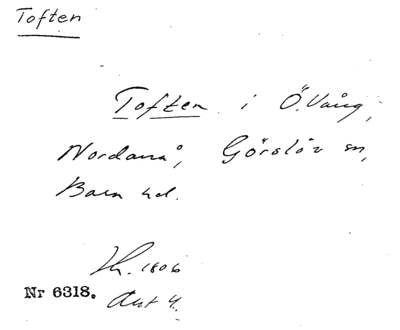 Toften
Toften i Ö. Vång,
Nordanå, Görslöv sn,
Bara hd.
Lh. 1806
Nr 6318. Akt 4.